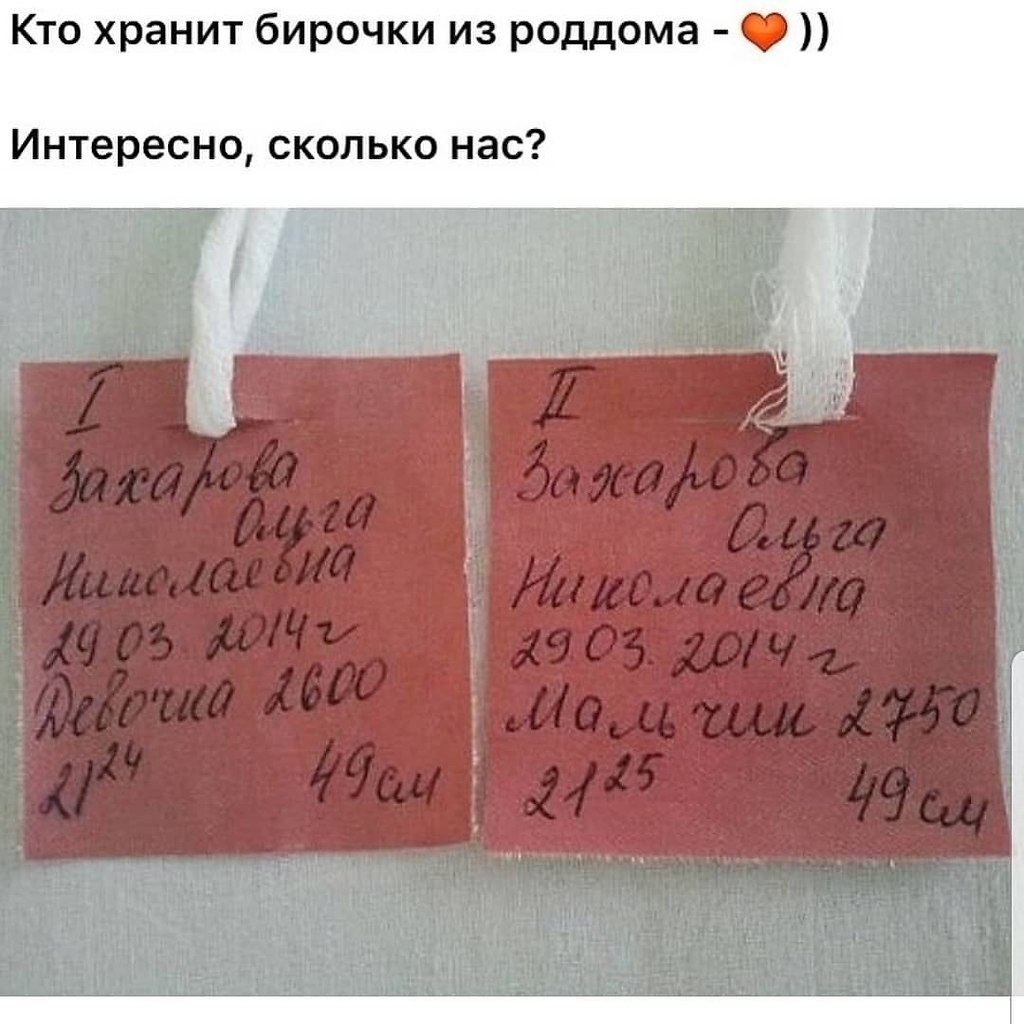 Кто хранит бирочки из роддома - ❤️))
Интересно, сколько нас?
I
Захарова
Ольга
Николаевна
29.03.2014г
Девочка 2600
21²⁴ 49см
II
Захарова
Ольга
Николаевна
29 03. 2014 г
Мальчик 2750
21²⁵ 49 см